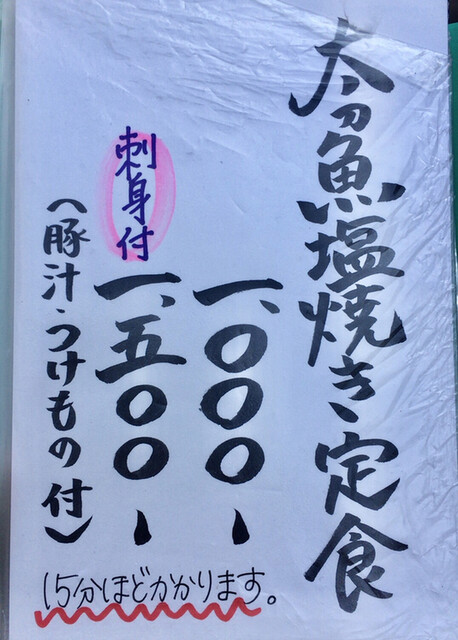 太刀魚塩焼き定食
一、〇〇〇ー
刺身付
一、五〇〇ー
(豚汁・つけもの付)
15分ほどかかります。